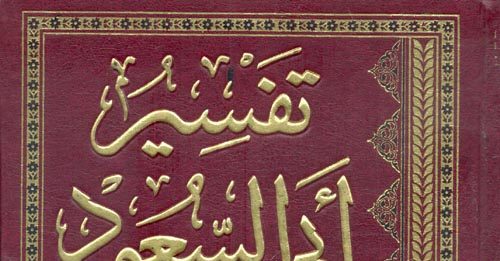 تفسير
أبي السعود